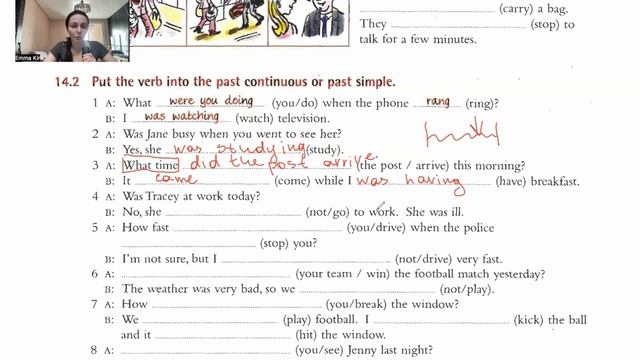 (carry) a bag.
They (stop) to
talk for a few minutes.
Emma Kir
14.2 Put the verb into the past continuous or past simple.
1 A: What were you doing (you/do) when the phone rang (ring)?
B: I was watching (watch) television.
2 A: Was Jane busy when you went to see her?
B: Yes, she was studying (study).
3 A: What time did the post arrive (the post / arrive) this morning?
B: It came (come) while I was having (have) breakfast.
4 A: Was Tracey at work today?
B: No, she (not/go) to work. She was ill.
5 A: How fast (you/drive) when the police
(stop) you?
B: I'm not sure, but I (not/drive) very fast.
6 A: (your team / win) the football match yesterday?
B: The weather was very bad, so we (not/play).
7 A: How (you/break) the window?
B: We (play) football. I (kick) the ball
and it (hit) the window.
8 A: (you/see) Jenny last night?